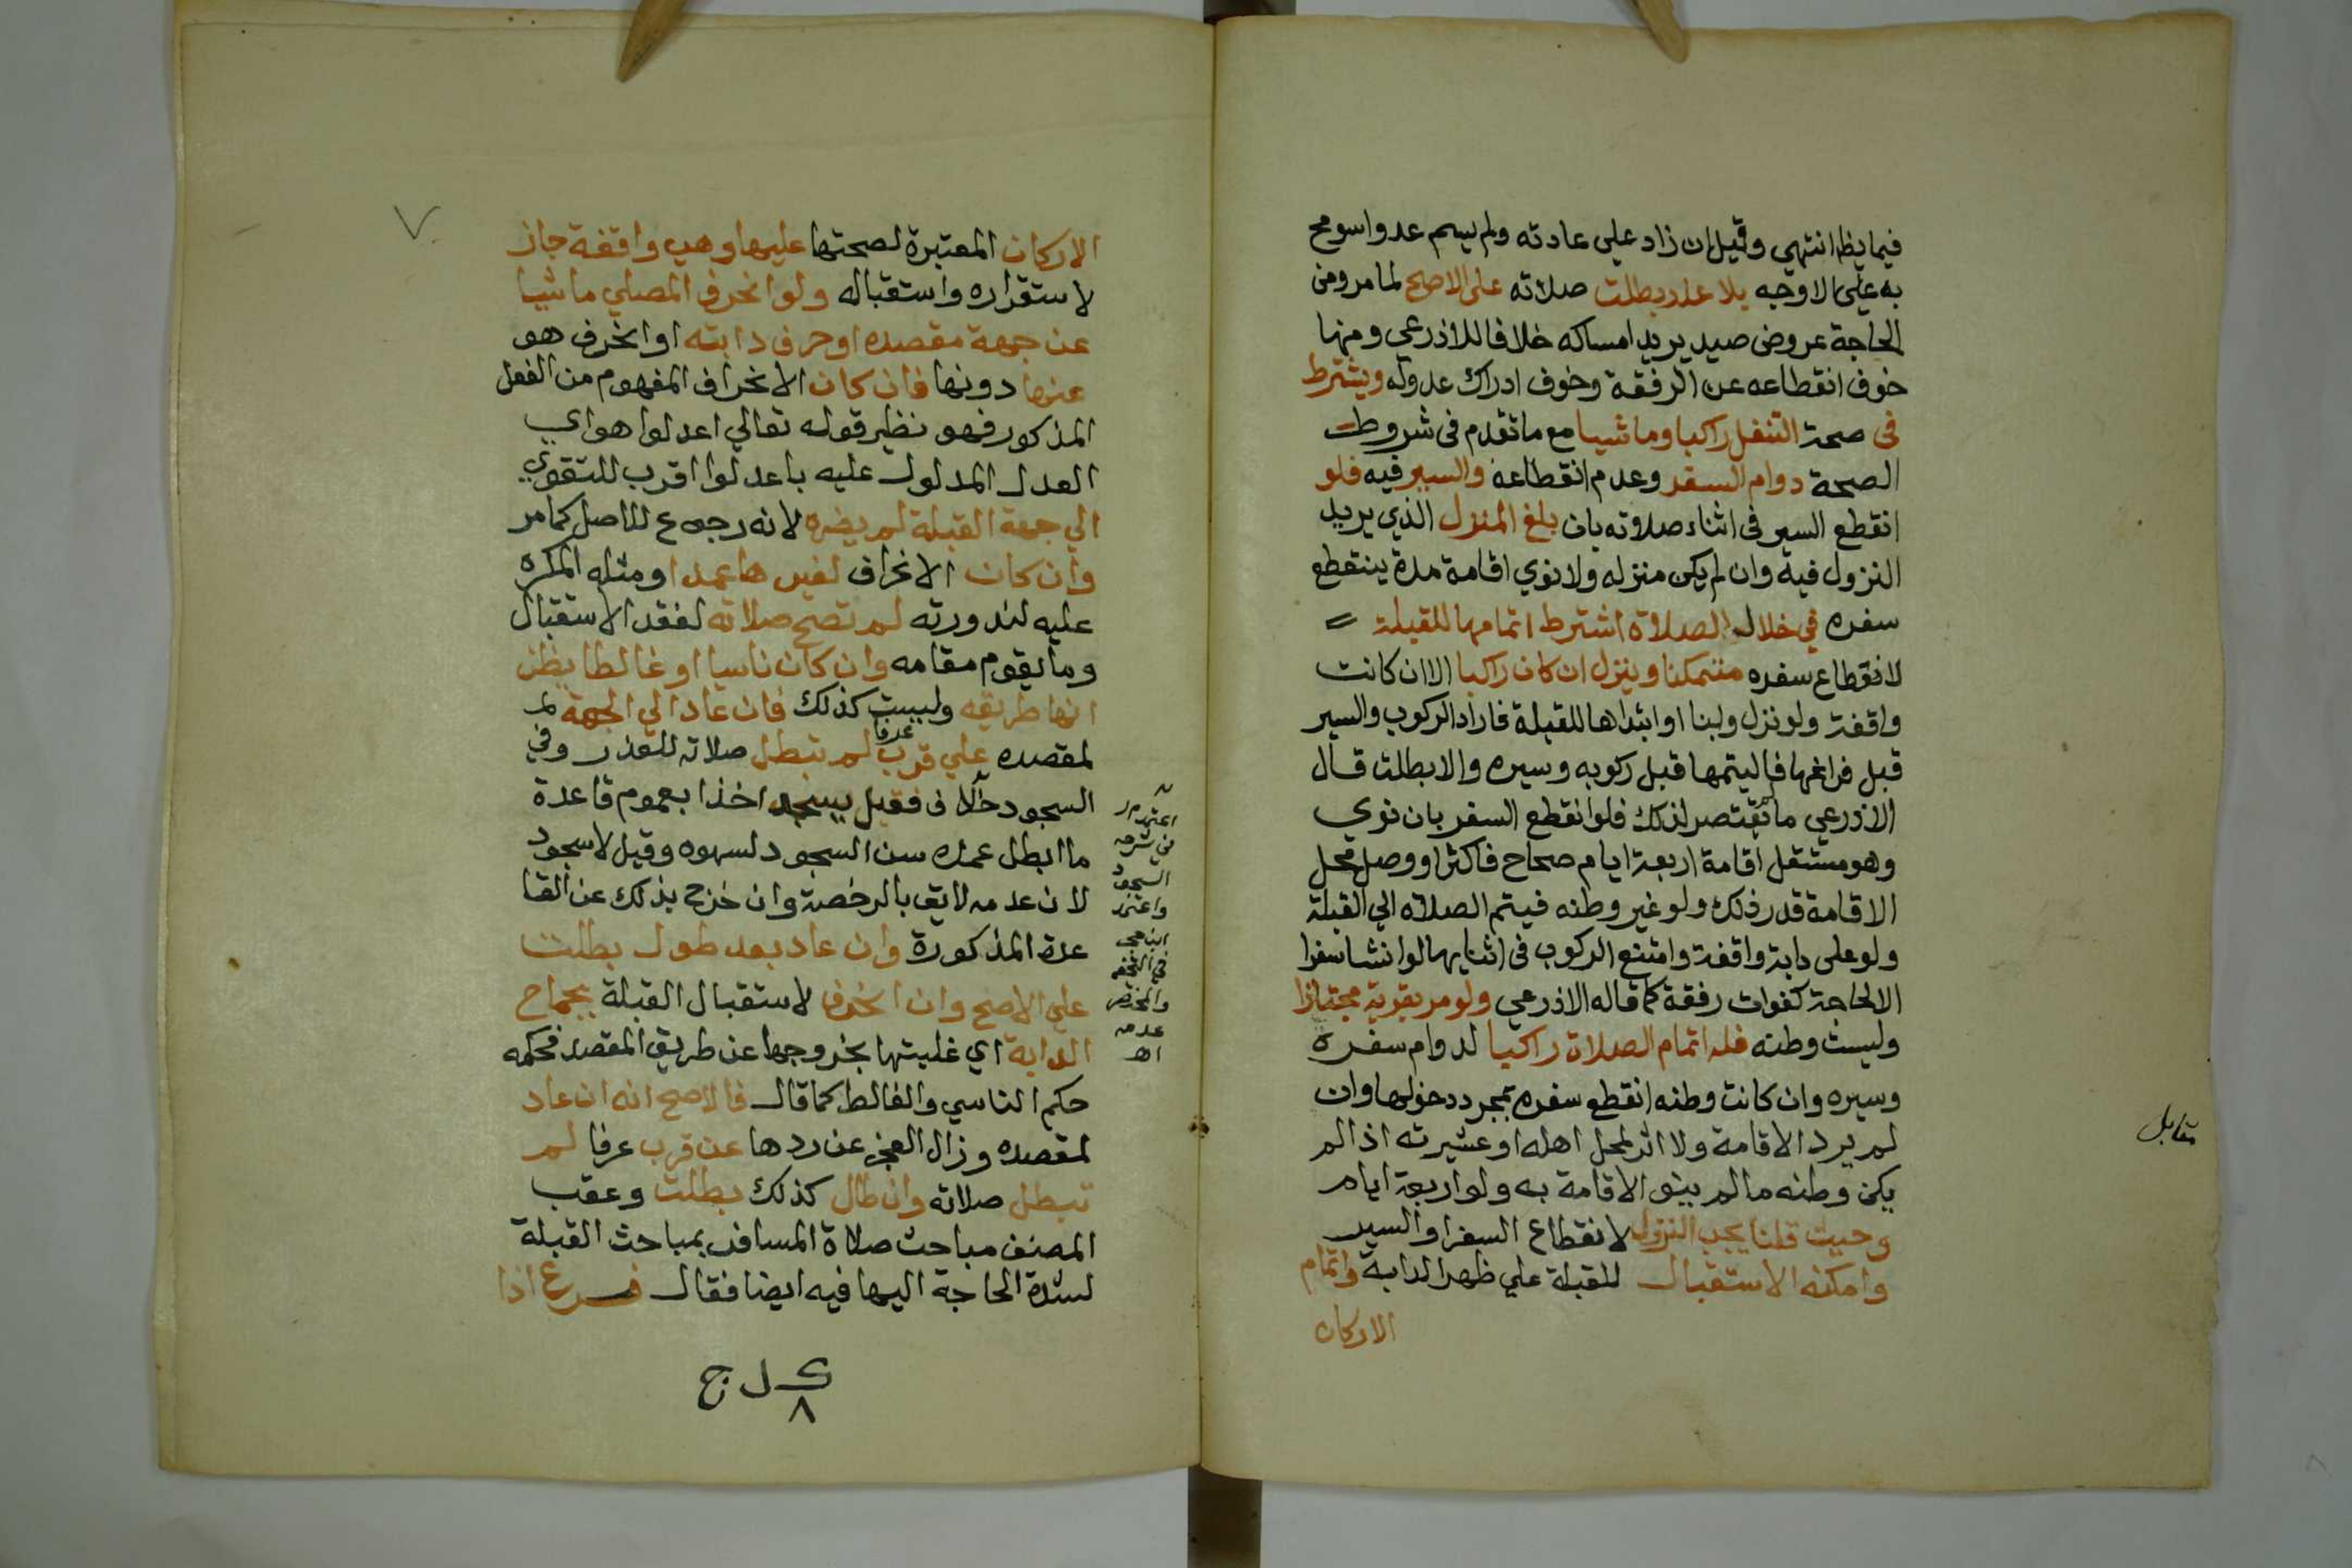 فيما يظهر انتهي وقيل ان زاد علي عادته ولم يسم عدوا سومح
به علي الاوجه بلا عذر بطلت صلاته علي الاصح لما مر ومن
الحاجة عروض صيد يريد امساكه خلافا للاذرعي ومنها
خوف انقطاعه عن الرفقة وخوف ادراك عدوله ويشترط
في صحة التنفل راكبا وماشيا مع ما تقدم في شروط
الصحة دوام السفر وعدم انقطاعه والسير فيه فلو
انقطع السير في اثناء صلاته بان بلغ المنزل الذي يريد
النزول فيه وان لم يكن منزله ولا نوي اقامة مدة ينقطع
سفره في خلال الصلاة اشترط اتمامها للقبلة =
لانقطاع سفره متمكنا وينزل ان كان راكبا الا ان كانت
واقفة ولو نزل وبنا او ابتداها للقبلة فاراد الركوب والسير
قبل فراغها فاليتمها قبل ركوبه وسيره والا بطلت قال
الاذرعي ما لم يقتصر لذلك فلو انقطع السفر بان نوي
وهو مستقل اقامة اربعة ايام صحاح فاكثر او وصل محل
الاقامة قدر ذلك ولو غير وطنه فيتم الصلاه الي القبلة
ولو علي دابة واقفة وامتنع الركوب في اثنايها لو انشا سفرا
الا لحاجة كفوات رفقة كما قاله الاذرعي ولو مر بقرية مجتازا
وليست وطنه فله اتمام الصلاة راكبا لدوام سفره
وسيره وان كانت وطنه انقطع سفره بمجرد دخولها وان
لم يرد الاقامة ولا اثر لمحل اهله او عشيرته اذا لم
يكن وطنه ما لم ينو الاقامة به ولو اربعة ايام
وحيث قلنا يجب النزول لانقطاع السفر او السير
وامكنه الاستقبال للقبلة علي ظهر الدابة واتمام
الاركان
مقابل
الاركان المعتبرة لصحتها عليها وهي واقفة جاز
لاستقراره واستقباله ولو انحرف المصلي ماشيا
عن جهة مقصده او حرف دابته او انحرف هو
عنها دونها فان كان الانحراف المفهوم من الفعل
المذكور فهو نظير قوله تعالي اعدلوا هو اي
العدل المدلول عليه باعدلوا اقرب للتقوي
الي جهة القبلة لم يضره لانه رجوع للاصل كما مر
وان كان الانحراف لغيرها عمدا ومثله المكره
عليه لندورته لم تصح صلاته لفقد الاستقبال
وما يقوم مقامه وان كان ناسيا او غالطا يظن
انها طريقه وليست كذلك فان عاد الي الجهة لم
لمقصده علي قرب عرفا لم تبطل صلاته للعذر وفي
السجود خلاف فقيل يسجد اخذا بعموم قاعدة
ما ابطل عمده سن السجود لسهوه وقيل لا سجود
لان عدمه لايق بالرخصة وان خرج بذلك عن القا
عدة المذكورة وان عاد بعد طول بطلت
علي الاصح وان انحرف لاستقبال القبلة بجماح
الدابة اي غلبتها بخروجها عن طريق المقصد فحكمه
حكم الناسي والغالط كما قال فالاصح انه ان عاد
لمقصده وزال العجز عن ردها عن قرب عرفا لم
تبطل صلاته وان طال كذلك بطلت وعقب
المصنف مباحث صلاة المسافر بمباحث القبلة
لشدة الحاجة اليها فيه ايضا فقال فرع اذا
اعتمد م ر
في شرحه
السجود
واعتمد
ابن حجر
في التحفة
والمختصر
عدمه
اه
٧